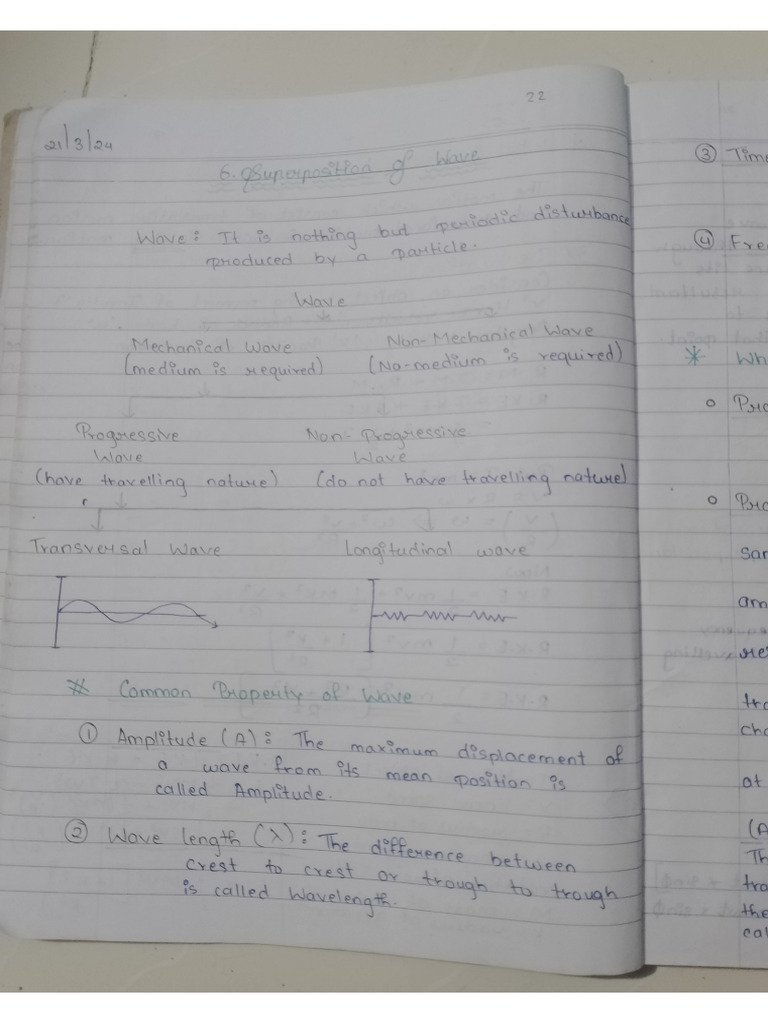 22
21/3/24
6. Superposition of Wave
Wave: It is nothing but periodic disturbance
produced by a particle.
Wave
Mechanical Wave Non-Mechanical Wave
(medium is required) (No-medium is required)
Progressive Non-Progressive
Wave Wave
(have travelling nature) (do not have travelling nature)
Transversal Wave Longitudinal wave
* Common Property of Wave
① Amplitude (A): The maximum displacement of
a wave from its mean position is
called Amplitude.
② Wave length (λ): The difference between
crest to crest or trough to trough
is called Wavelength.
③ Time
④ Fre
* Wh
o Pro
o Pro
sar
am
re
tra
cha
at
(A
Th
tra
the
cal